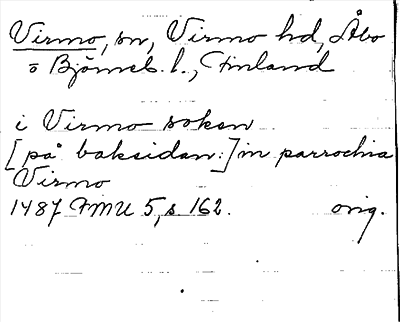 Virmo, sn, Virmo hd, Åbo
o Björneb. l., Finland
i Virmo soken
[på baksidan:] in parrochia
Virmo
1487 FMU 5, s 162. orig.